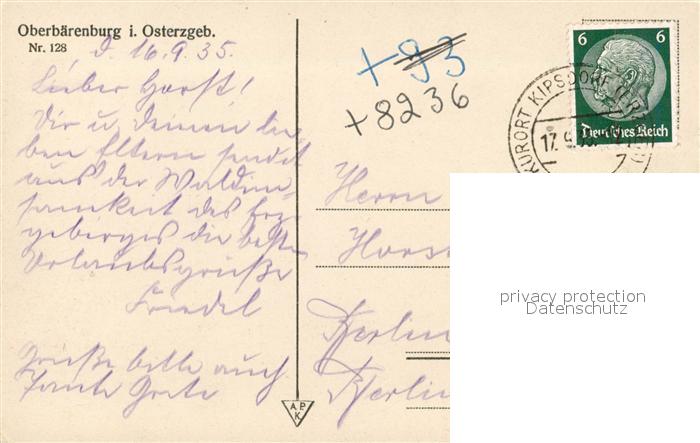 Oberbärenburg i. Osterzgeb.
Nr. 128
d. 16.9.35.
Lieber Horst!
Dir u. deinen lie-
ben Eltern sendet
aus der Waldein-
samkeit des Erz-
gebirges die besten
Urlaubsgrüße
Friedel
Grüße bitte auch
Tante Grete
+93
+8236
6 6
Deutsches Reich
KURORT KIPSDORF
17.9.
7
Herrn
Horst
Berlin
Berlin
A.P.
K.
privacy protection
Datenschutz